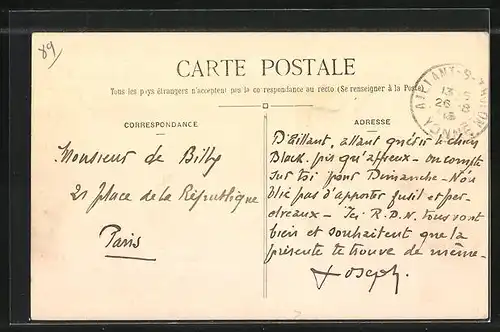 89
CARTE POSTALE
Tous les pays étrangers n'acceptent pas la correspondance au récto (Se renseigner à la Poste)
CORRESPONDANCE
ADRESSE
Monsieur de Billy
21 place de la République
Paris
D'Aillant, allant quérir le chien
Black. pis qu'affreux - on compte
sur toi pour Dimanche - N'ou
blie pas d'apporter fusil et per
dreaux - Ici R.D.N. tous vont
bien et souhaitent que la
présente te trouve de même -
Joseph.
AILLANT-S-THOLON
13
26
YONNE